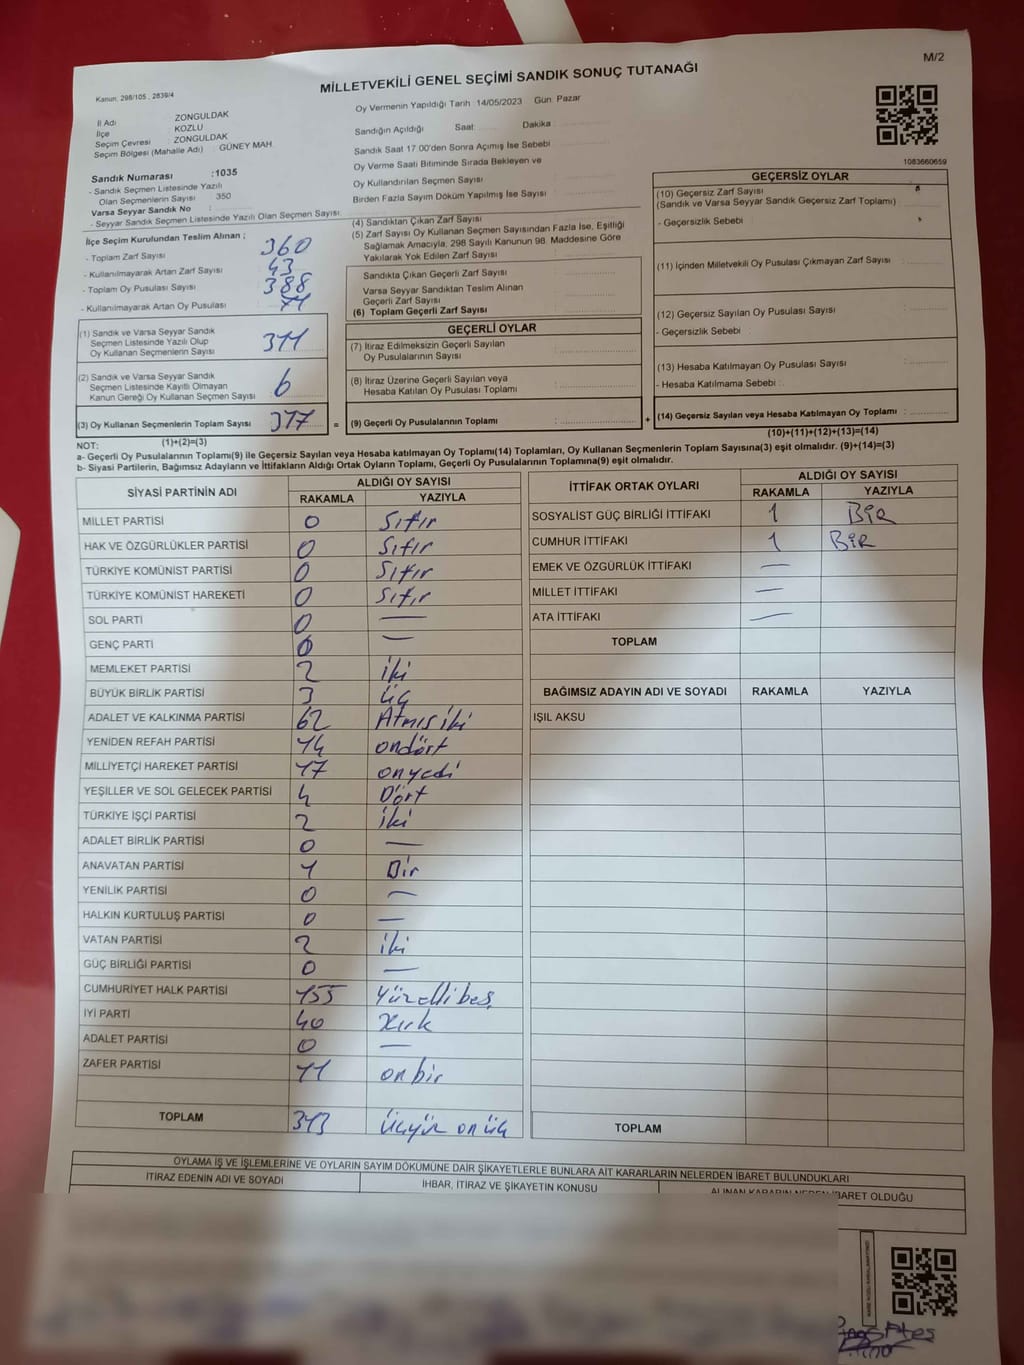 M/2
MİLLETVEKİLİ GENEL SEÇİMİ SANDIK SONUÇ TUTANAĞI
Kanun: 298/105 , 2839/4
İl Adı ZONGULDAK
İlçe KOZLU
Seçim Çevresi : ZONGULDAK
Seçim Bölgesi (Mahalle Adı) : GÜNEY MAH.
Sandık Numarası :1035
- Sandık Seçmen Listesinde Yazılı
Olan Seçmenlerin Sayısı 350
Varsa Seyyar Sandık No :
- Seyyar Sandık Seçmen Listesinde Yazılı Olan Seçmen Sayısı
Oy Vermenin Yapıldığı Tarih 14/05/2023 Gün Pazar
Sandığın Açıldığı Saat: Dakika :
Sandık Saat 17.00'den Sonra Açımış İse Sebebi
Oy Verme Saati Bitiminde Sırada Bekleyen ve
Oy Kullandırılan Seçmen Sayısı
Birden Fazla Sayım Döküm Yapılmış İse Sayısı
1083660659
İlçe Seçim Kurulundan Teslim Alınan ;
- Toplam Zarf Sayısı 360
- Kullanılmayarak Artan Zarf Sayısı 43
- Toplam Oy Pusulası Sayısı 388
- Kullanılmayarak Artan Oy Pusulası 71
(1) Sandık ve Varsa Seyyar Sandık
Seçmen Listesinde Yazılı Olup
Oy Kullanan Seçmenlerin Sayısı 311
(2) Sandık ve Varsa Seyyar Sandık
Seçmen Listesinde Kayıtlı Olmayan
Kanun Gereği Oy Kullanan Seçmen Sayısı 6
(3) Oy Kullanan Seçmenlerin Toplam Sayısı 317 =
(4) Sandıktan Çıkan Zarf Sayısı
(5) Zarf Sayısı Oy Kullanan Seçmen Sayısından Fazla İse, Eşitliği
Sağlamak Amacıyla, 298 Sayılı Kanunun 98. Maddesine Göre
Yakılarak Yok Edilen Zarf Sayısı
Sandıkta Çıkan Geçerli Zarf Sayısı
Varsa Seyyar Sandıktan Teslim Alınan
Geçerli Zarf Sayısı
(6) Toplam Geçerli Zarf Sayısı
GEÇERLİ OYLAR
(7) İtiraz Edilmeksizin Geçerli Sayılan
Oy Pusulalarının Sayısı
(8) İtiraz Üzerine Geçerli Sayılan veya
Hesaba Katılan Oy Pusulası Toplamı
(9) Geçerli Oy Pusulalarının Toplamı : +
GEÇERSİZ OYLAR
(10) Geçersiz Zarf Sayısı
(Sandık ve Varsa Seyyar Sandık Geçersiz Zarf Toplamı)
- Geçersizlik Sebebi :
(11) İçinden Milletvekili Oy Pusulası Çıkmayan Zarf Sayısı
(12) Geçersiz Sayılan Oy Pusulası Sayısı
- Geçersizlik Sebebi :
(13) Hesaba Katılmayan Oy Pusulası Sayısı
- Hesaba Katılmama Sebebi :
(14) Geçersiz Sayılan veya Hesaba Katılmayan Oy Toplamı :
(1)+(2)=(3)
(10)+(11)+(12)+(13)=(14)
NOT:
a- Geçerli Oy Pusulalarının Toplam(9) ile Geçersiz Sayılan veya Hesaba katılmayan Oy Toplamı(14) Toplamları, Oy Kullanan Seçmenlerin Toplam Sayısına(3) eşit olmalıdır. (9)+(14)=(3)
b- Siyasi Partilerin, Bağımsız Adayların ve İttifakların Aldığı Ortak Oyların Toplamı, Geçerli Oy Pusulalarının Toplamına(9) eşit olmalıdır.
SİYASİ PARTİNİN ADI ALDIĞI OY SAYISI
RAKAMLA YAZIYLA
MİLLET PARTİSİ 0 Sıfır
HAK VE ÖZGÜRLÜKLER PARTİSİ 0 Sıfır
TÜRKİYE KOMÜNİST PARTİSİ 0 Sıfır
TÜRKİYE KOMÜNİST HAREKETİ 0 Sıfır
SOL PARTİ 0 —
GENÇ PARTİ 0 —
MEMLEKET PARTİSİ 2 iki
BÜYÜK BİRLİK PARTİSİ 3 üç
ADALET VE KALKINMA PARTİSİ 62 Atmış iki
YENİDEN REFAH PARTİSİ 14 ondört
MİLLİYETÇİ HAREKET PARTİSİ 17 onyedi
YEŞİLLER VE SOL GELECEK PARTİSİ 4 Dört
TÜRKİYE İŞÇİ PARTİSİ 2 iki
ADALET BİRLİK PARTİSİ 0 —
ANAVATAN PARTİSİ 1 Bir
YENİLİK PARTİSİ 0 —
HALKIN KURTULUŞ PARTİSİ 0 —
VATAN PARTİSİ 2 iki
GÜÇ BİRLİĞİ PARTİSİ 0 —
CUMHURİYET HALK PARTİSİ 155 Yüzellibeş
İYİ PARTİ 40 Kırk
ADALET PARTİSİ 0 —
ZAFER PARTİSİ 11 onbir
TOPLAM 313 üçyüz onüç
İTTİFAK ORTAK OYLARI ALDIĞI OY SAYISI
RAKAMLA YAZIYLA
SOSYALİST GÜÇ BİRLİĞİ İTTİFAKI 1 BİR
CUMHUR İTTİFAKI 1 BİR
EMEK VE ÖZGÜRLÜK İTTİFAKI —
MİLLET İTTİFAKI —
ATA İTTİFAKI —
TOPLAM
BAĞIMSIZ ADAYIN ADI VE SOYADI RAKAMLA YAZIYLA
IŞIL AKSU
TOPLAM
OYLAMA İŞ VE İŞLEMLERİNE VE OYLARIN SAYIM DÖKÜMÜNE DAİR ŞİKAYETLERLE BUNLARA AİT KARARLARIN NELERDEN İBARET BULUNDUKLARI
İTİRAZ EDENİN ADI VE SOYADI İHBAR, İTİRAZ VE ŞİKAYETİN KONUSU ALINAN KARARIN NEDEN İBARET OLDUĞU